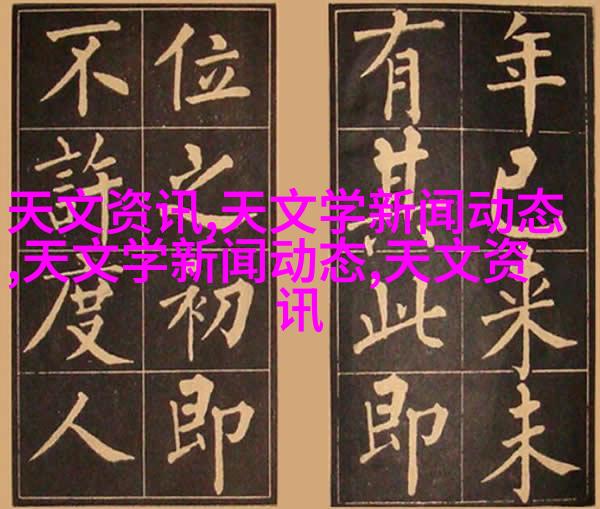 年已来未
有其此即
位之初即
不許度人
天文资讯,天文学新闻动态
,天文学新闻动态,天文资
讯